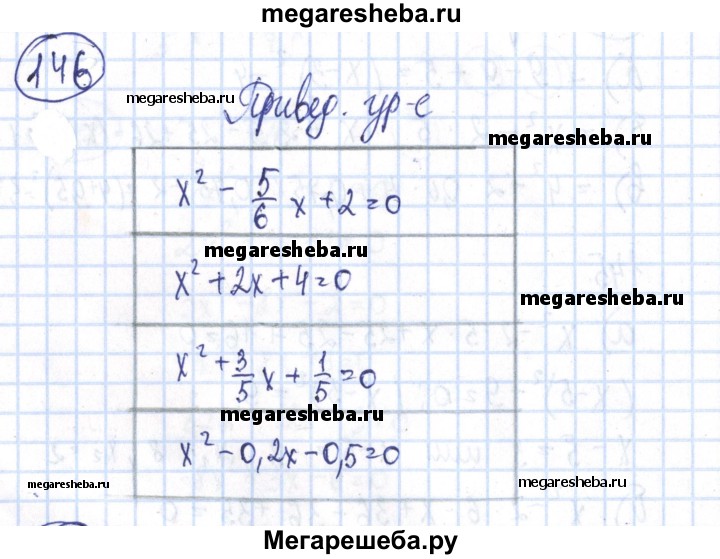 megaresheba.ru
146
megaresheba.ru
Привед. ур-е
megaresheba.ru
x² - 5/6 x + 2 = 0
megaresheba.ru
x² + 2x + 4 = 0
megaresheba.ru
x² + 3/5 x + 1/5 = 0
megaresheba.ru
x² - 0,2x - 0,5 = 0
megaresheba.ru
megaresheba.ru
Мегарешеба.ру